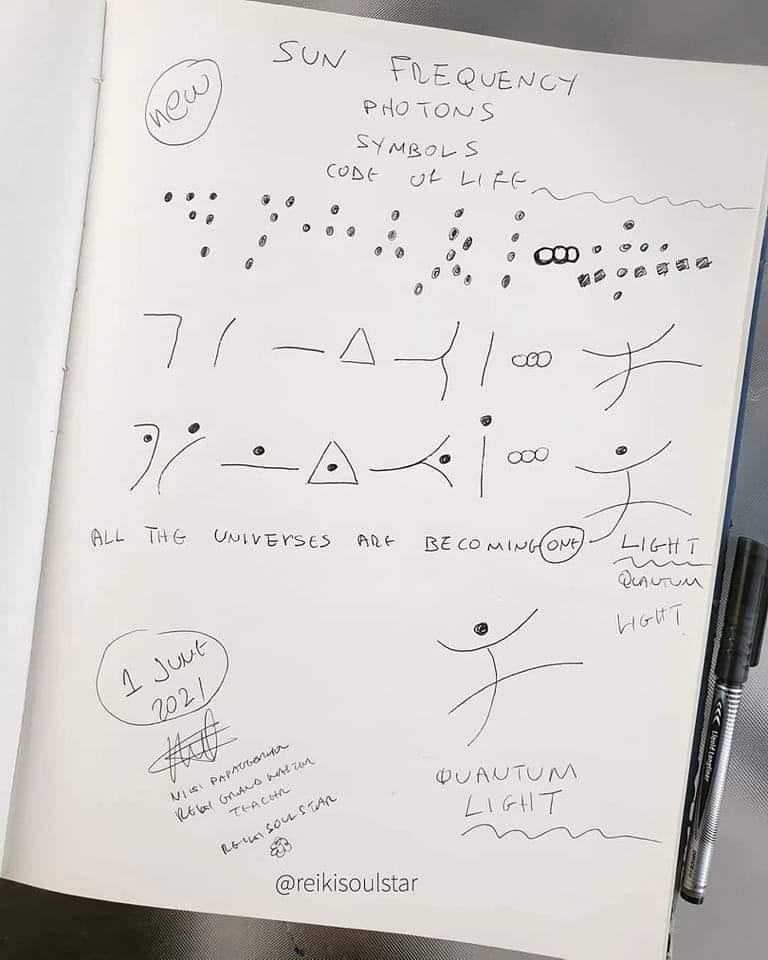 new
SUN FREQUENCY
PHOTONS
SYMBOLS
CODE OF LIFE
ALL THE UNIVERSES ARE BECOMING ONE
LIGHT
QUANTUM
LIGHT
1 JUNE
2021
REIKI GRAND MASTER
TEACHER
REIKI SOUL STAR
QUANTUM
LIGHT
@reikisoulstar